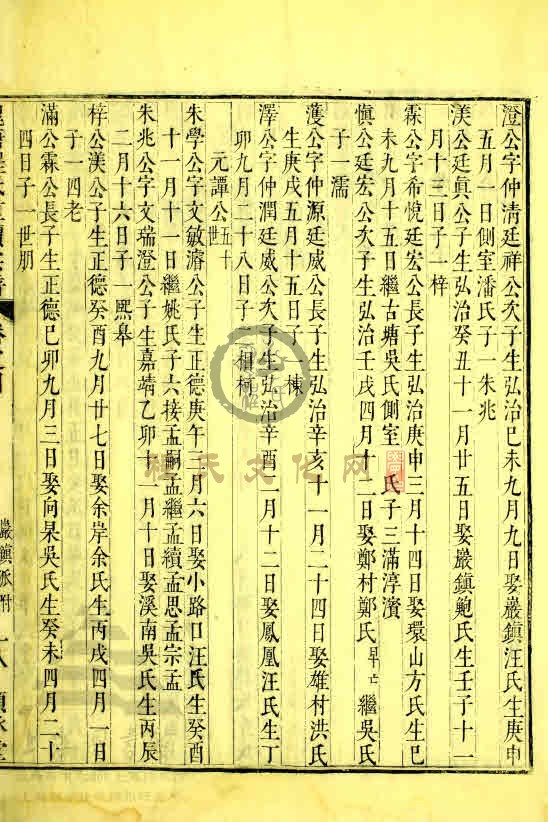 澄公字仲清廷祥公次子生弘治己未九月九日娶巖鎮汪氏生庚申
五月一日側室潘氏子一朱兆
渼公廷眞公子生弘治癸丑十一月廿五日娶巖鎮鮑氏生壬子十一
月十三日子一梓
霖公字希悅廷宏公長子生弘治庚申三月十四日娶環山方氏生巳
未九月十五日繼古塘吳氏側室 氏子三滿淳濱
愼公廷宏公次子生弘治壬戌四月十二日娶鄭村鄭氏早亡繼吳氏
子一濡
濩公字仲源廷威公長子生弘治辛亥十一月二十四日娶雄村洪氏
生庚戌五月十五日子一棟
澤公字仲潤廷威公次子生弘治辛酉二月十二日娶鳳凰汪氏生丁
卯九月二十八日子二相柯
元譚公五十世
朱學公字文敏濬公子生正德庚午三月六日娶小路口汪氏生癸酉
十一月十一日繼姚氏子六接孟嗣孟繼孟續孟思孟宗孟
朱兆公字文瑞澄公子生嘉靖乙卯十 月十日娶溪南吳氏生丙辰
二月十六日子一熙皋
梓公渼公子生正德癸酉九月廿七日娶余岸余氏生丙戌四月一日
子一四老
滿公霖公長子生正德己卯九月三日娶向杲吳氏生癸未四月二十
四日子一世朋
巖鎮派附
程氏文化网